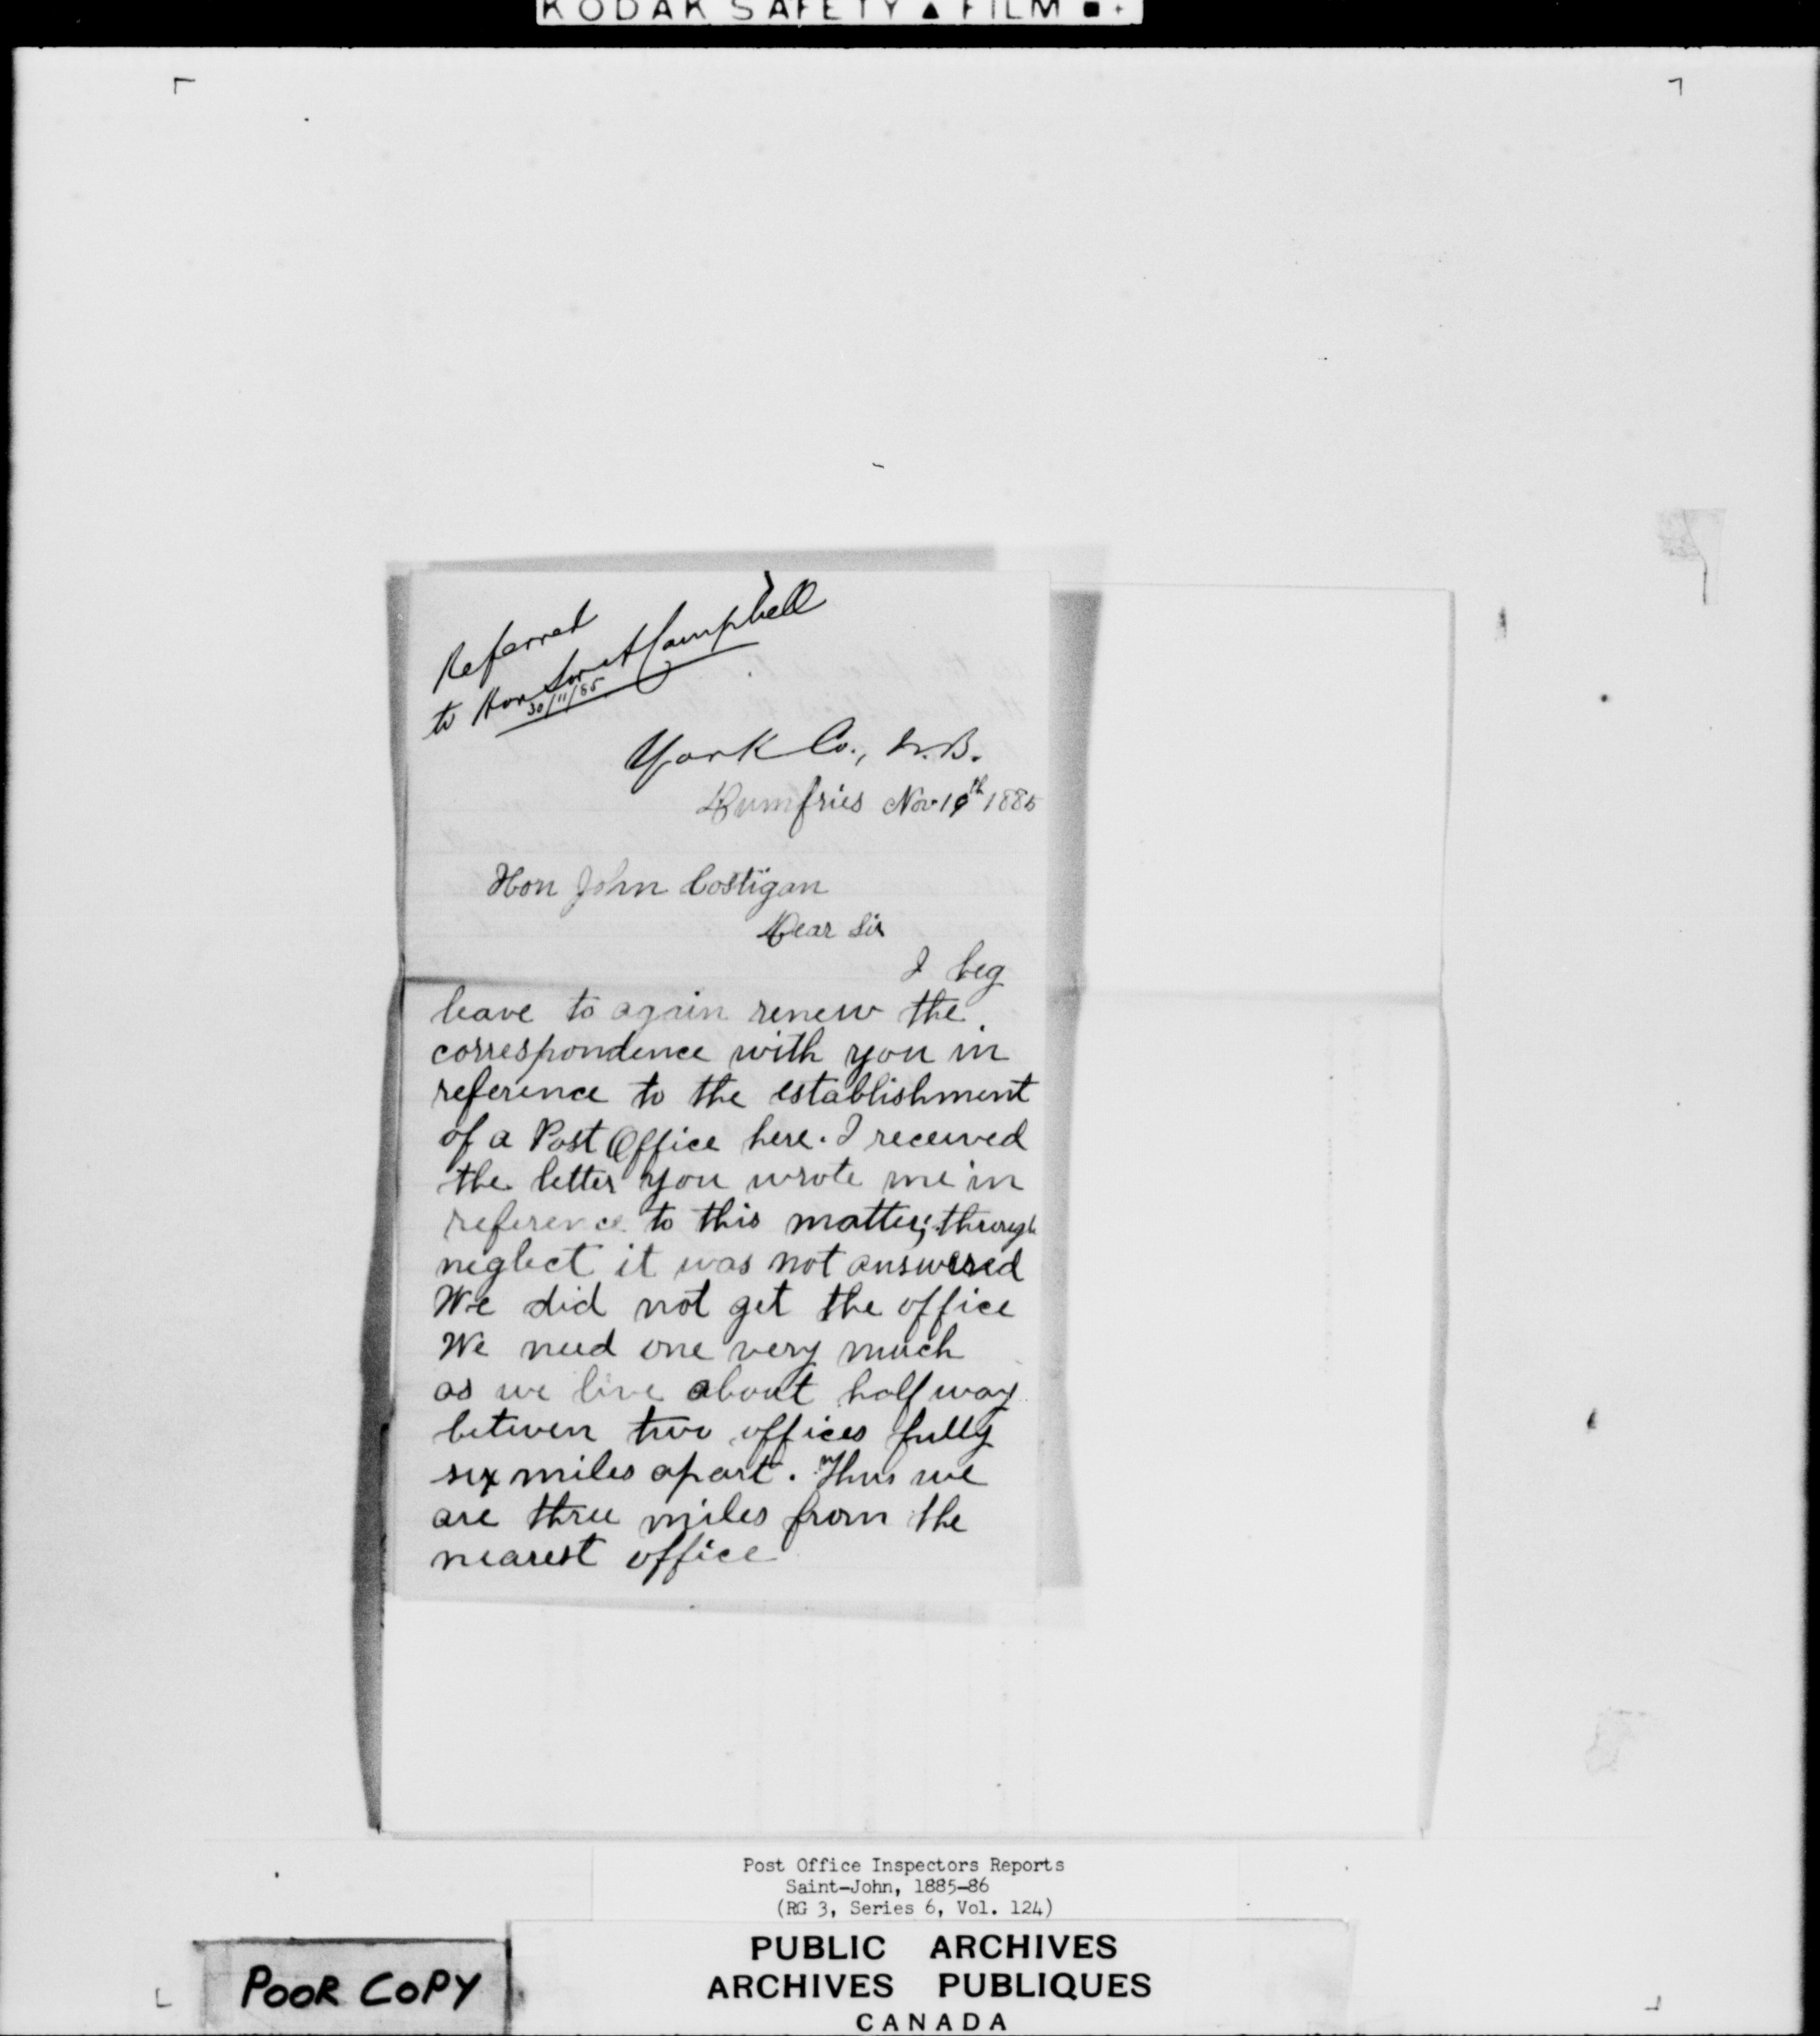 KODAK SAFETY ▲ FILM ■ +
Referred
to Hon Sir A Campbell
30/11/85
York Co., N.B.
Dumfries Nov 19th 1885
Hon John Costigan
Dear Sir
I beg
leave to again renew the
correspondence with you in
reference to the establishment
of a Post Office here. I received
the letter you wrote me in
reference to this matter; through
neglect it was not answered
We did not get the office
We need one very much
as we live about half way
between two offices fully
six miles apart. Thus we
are three miles from the
nearest office
Post Office Inspectors Reports
Saint-John, 1885-86
(RG 3, Series 6, Vol. 124)
PUBLIC ARCHIVES
ARCHIVES PUBLIQUES
CANADA
POOR COPY